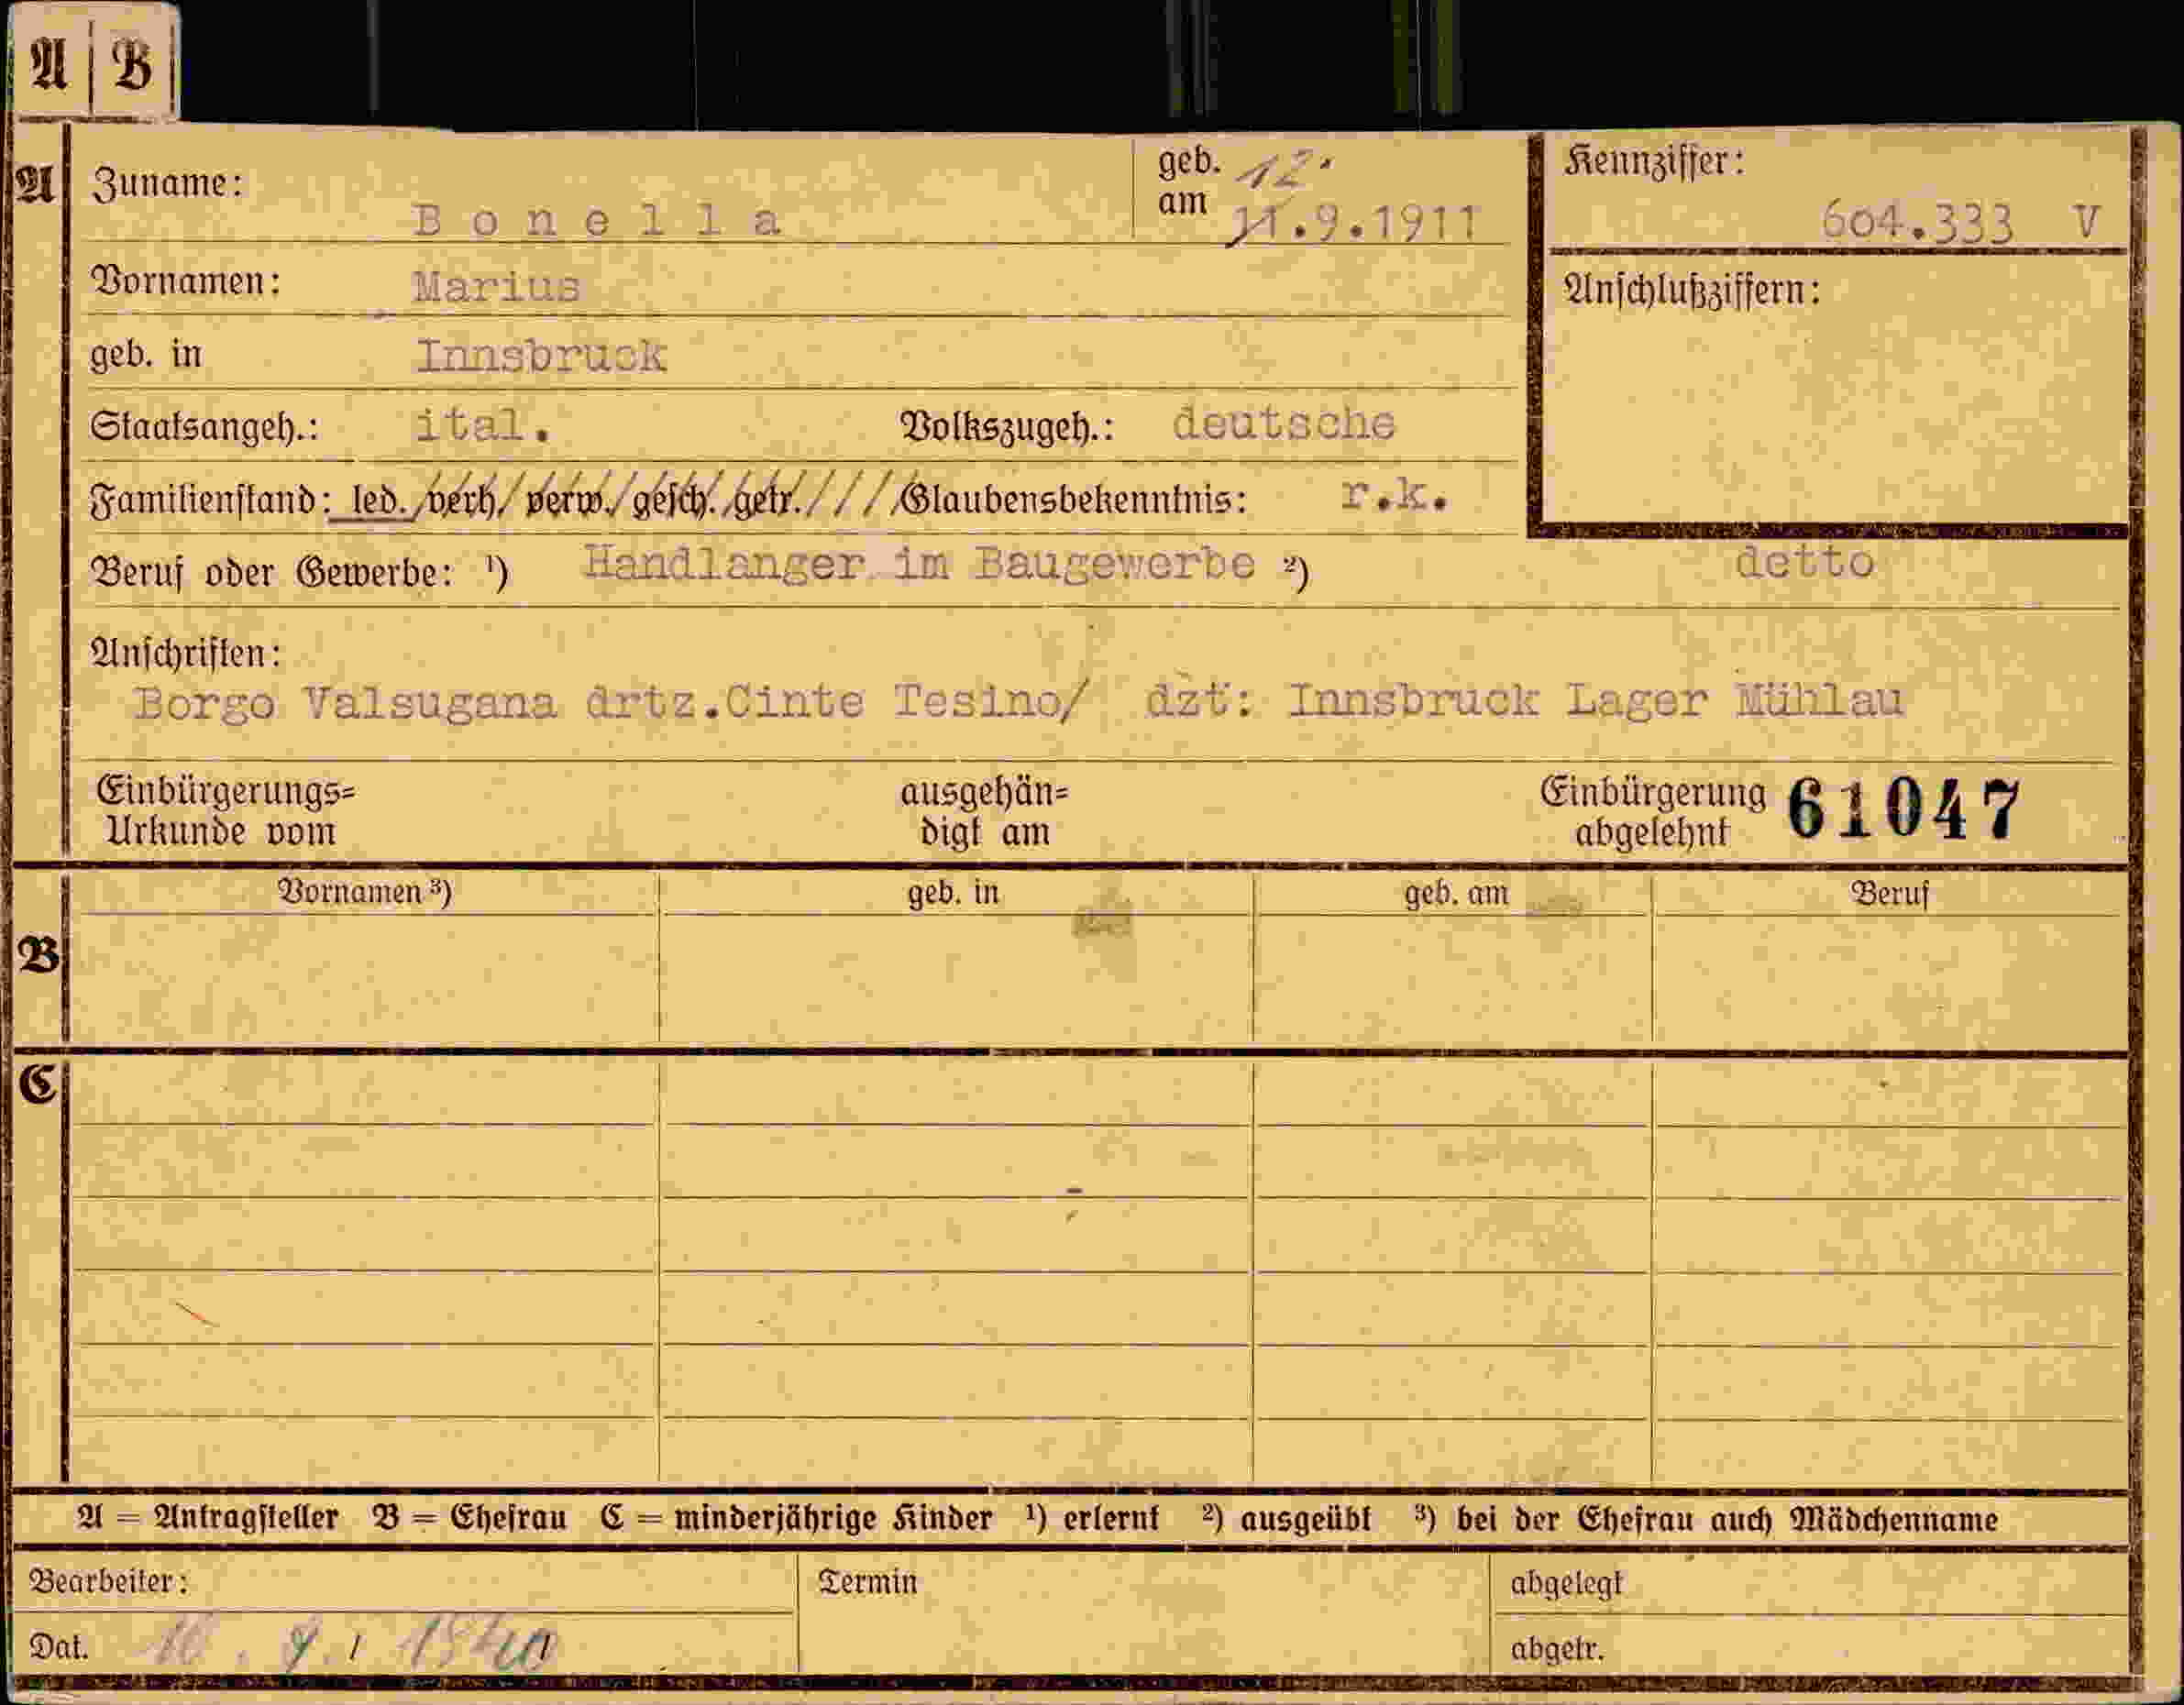 A | B
A
Zuname: Bonella geb. am 12. 11.9.1911
Kennziffer: 604.333 V
Vornamen: Marius
Anschlußziffern:
geb. in Innsbruck
Staatsangeh.: ital. Volkszugeh.: deutsche
Familienstand: led./verh/verw./gesch./getr.////Glaubensbekenntnis: r.k.
Beruf oder Gewerbe: ¹) Handlanger im Baugewerbe ²) detto
Anschriften:
Borgo Valsugana drtz.Cinte Tesino/ dzt: Innsbruck Lager Mühlau
Einbürgerungs= ausgehän= Einbürgerung 61047
Urkunde vom digt am abgelehnt
B
Vornamen ³) geb. in geb. am Beruf
C
A = Antragsteller B = Ehefrau C = minderjährige Kinder ¹) erlernt ²) ausgeübt ³) bei der Ehefrau auch Mädchenname
Bearbeiter: Termin abgelegt
Dat. 9. 1940 abgetr.